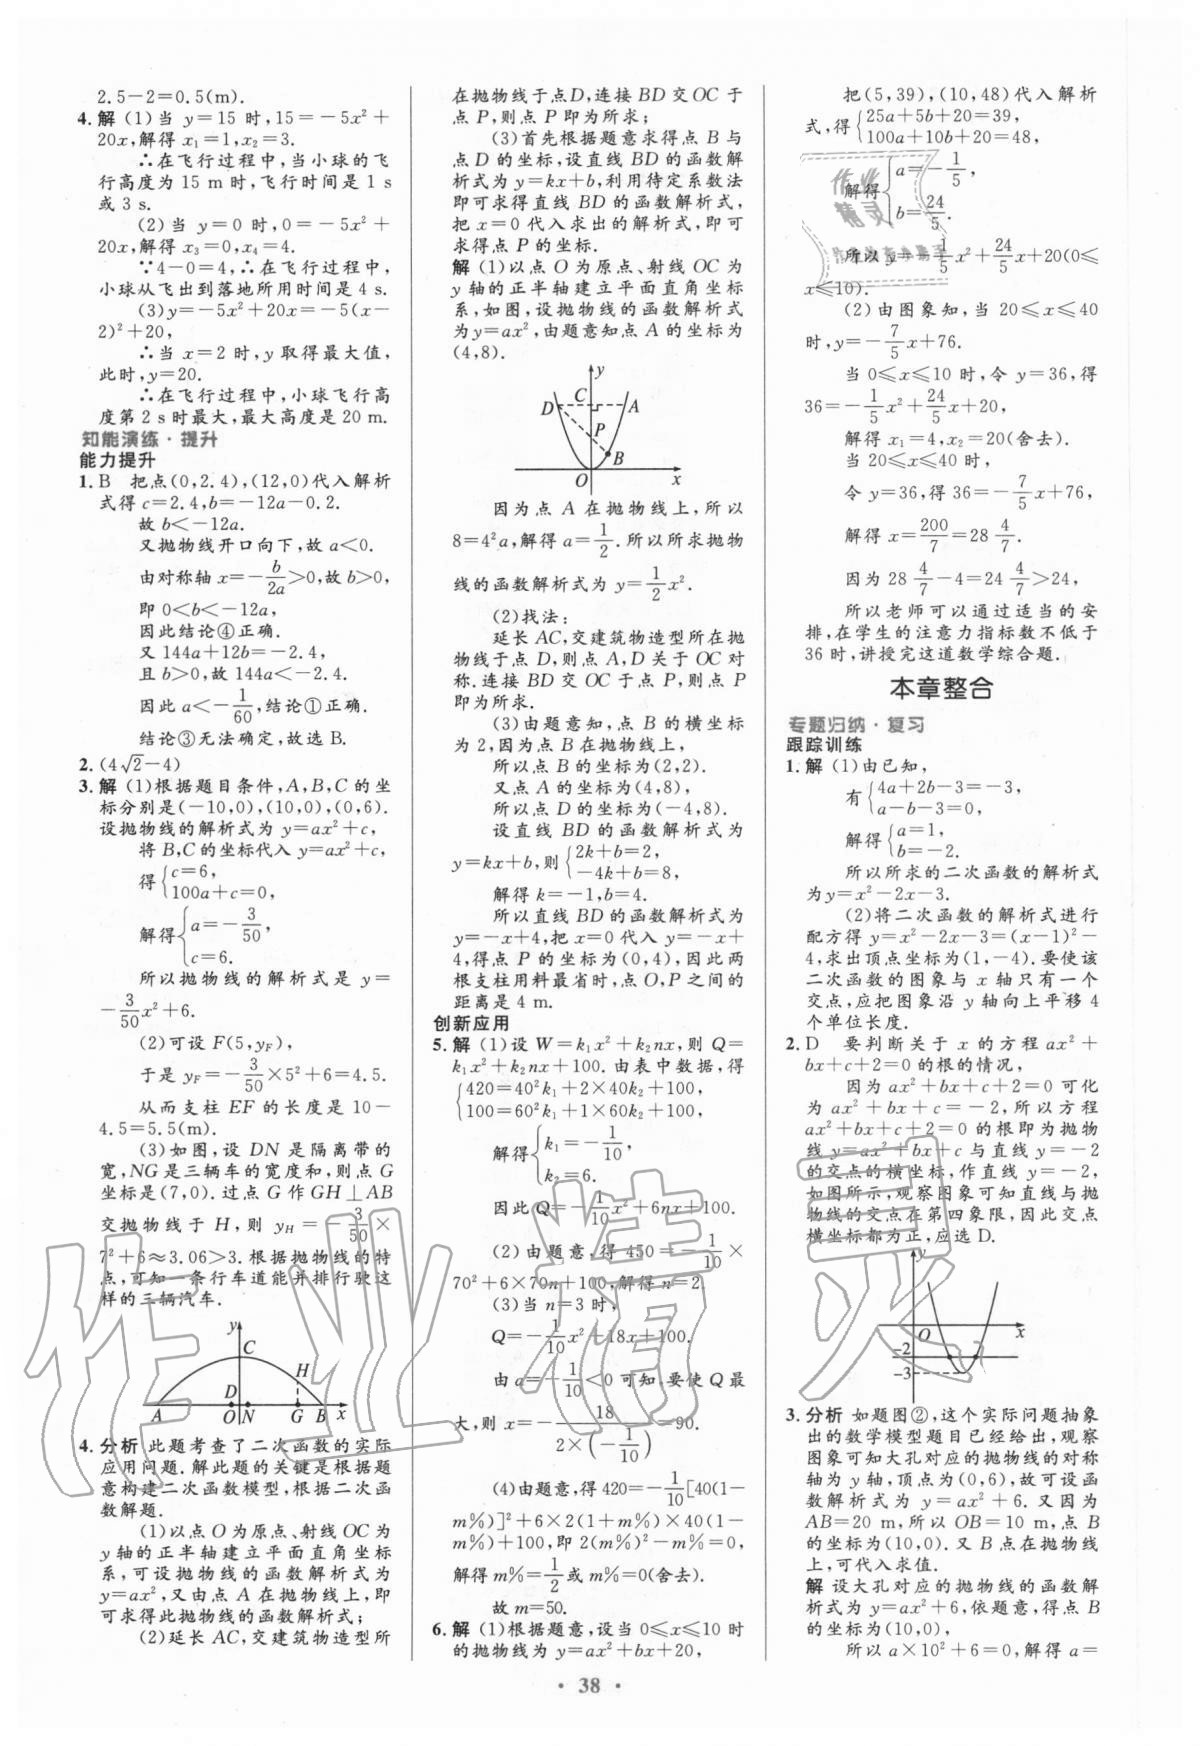 2.5-2=0.5(m).
4. 解 (1)当 y=15 时,15=-5x²+
20x,解得 x₁=1,x₂=3.
∴在飞行过程中,当小球的飞
行高度为 15 m 时,飞行时间是 1 s
或 3 s.
(2)当 y=0 时,0=-5x²+
20x,解得 x₃=0,x₄=4.
∵4-0=4,∴在飞行过程中,
小球从飞出到落地所用时间是 4 s.
(3)y=-5x²+20x=-5(x-
2)²+20,
∴当 x=2 时,y 取得最大值,
此时,y=20.
∴在飞行过程中,小球飞行高
度第 2 s 时最大,最大高度是 20 m.
知能演练·提升
能力提升
1. B 把点(0,2.4),(12,0)代入解析
式得 c=2.4,b=-12a-0.2.
故 b<-12a.
又抛物线开口向下,故 a<0.
由对称轴 x=-b/2a>0,故 b>0,
即 0<b<-12a,
因此结论④正确.
又 144a+12b=-2.4,
且 b>0,故 144a<-2.4,
因此 a<-1/60,结论①正确.
结论③无法确定,故选 B.
2. (4√2-4)
3. 解 (1)根据题目条件,A,B,C 的坐
标分别是(-10,0),(10,0),(0,6).
设抛物线的解析式为 y=ax²+c,
将 B,C 的坐标代入 y=ax²+c,
得{c=6,
100a+c=0,
解得{a=-3/50,
c=6.
所以抛物线的解析式是 y=
-3/50x²+6.
(2)可设 F(5,y_F),
于是 y_F=-3/50×5²+6=4.5.
从而支柱 EF 的长度是 10-
4.5=5.5(m).
(3)如图,设 DN 是隔离带的
宽,NG是三辆车的宽度和,则点 G
坐标是(7,0). 过点 G 作 GH⊥AB
交抛物线于 H,则 y_H=-3/50×
7²+6≈3.06>3. 根据抛物线的特
点,可知一条行车道能并排行驶这
样的三辆汽车.
y
C
H
D
A
O
N
G
B
x
4. 分析 此题考查了二次函数的实际
应用问题.解此题的关键是根据题
意构建二次函数模型,根据二次函
数解题.
(1)以点 O 为原点、射线 OC 为
y 轴的正半轴建立平面直角坐标
系,可设抛物线的函数解析式为
y=ax²,又由点 A 在抛物线上,即
可求得此抛物线的函数解析式;
(2)延长 AC,交建筑物造型所
在抛物线于点D,连接 BD 交 OC 于
点 P,则点 P 即为所求;
(3)首先根据题意求得点 B 与
点 D 的坐标,设直线 BD 的函数解
析式为 y=kx+b,利用待定系数法
即可求得直线 BD 的函数解析式,
把 x=0 代入求出的解析式,即可
求得点 P 的坐标.
解 (1)以点 O 为原点、射线 OC 为
y 轴的正半轴建立平面直角坐标
系,如图,设抛物线的函数解析式
为y=ax²,由题意知点 A 的坐标为
(4,8).
y
D
C
A
P
B
O
x
因为点 A 在抛物线上,所以
8=4²a,解得 a=1/2.所以所求抛物
线的函数解析式为 y=1/2x².
(2)找法:
延长 AC,交建筑物造型所在抛
物线于点 D,则点 A,D 关于 OC 对
称.连接 BD 交 OC 于点 P,则点 P
即为所求.
(3)由题意知,点 B 的横坐标
为 2,因为点 B 在抛物线上,
所以点 B 的坐标为(2,2).
又点 A 的坐标为(4,8),
所以点 D 的坐标为(-4,8).
设直线 BD 的函数解析式为
y=kx+b,则{2k+b=2,
-4k+b=8,
解得 k=-1,b=4.
所以直线 BD 的函数解析式为
y=-x+4,把 x=0 代入 y=-x+
4,得点 P 的坐标为(0,4),因此两
根支柱用料最省时,点 O,P 之间的
距离是 4 m.
创新应用
5. 解 (1)设 W=k₁x²+k₂nx,则 Q=
k₁x²+k₂nx+100. 由表中数据,得
{420=40²k₁+2×40k₂+100,
100=60²k₁+1×60k₂+100,
解得{k₁=-1/10,
k₂=6.
因此 Q=-1/10x²+6nx+100.
(2)由题意,得 450=-1/10×
70²+6×70n+100,解得 n=2.
(3)当 n=3 时,
Q=-1/10x²+18x+100.
由 a=-1/10<0 可知,要使 Q 最
大,则 x=-18/(2×(-1/10))=90.
(4)由题意,得 420=-1/10[40(1-
m%)]²+6×2(1+m%)×40(1-
m%)+100,即 2(m%)²-m%=0,
解得 m%=1/2或 m%=0(舍去).
故 m=50.
6. 解 (1)根据题意,设当 0≤x≤10 时
的抛物线为 y=ax²+bx+20,
把(5,39),(10,48)代入解析
式,得{25a+5b+20=39,
100a+10b+20=48,
解得{a=-1/5,
b=24/5.
所以 y=-1/5x²+24/5x+20(0≤
x≤10).
(2)由图象知,当 20≤x≤40
时,y=-7/5x+76.
当 0≤x≤10 时,令 y=36,得
36=-1/5x²+24/5x+20,
解得 x₁=4,x₂=20(舍去).
当 20≤x≤40 时,
令 y=36,得 36=-7/5x+76,
解得 x=200/7=28 4/7.
因为 28 4/7-4=24 4/7>24,
所以老师可以通过适当的安
排,在学生的注意力指标数不低于
36 时,讲授完这道数学综合题.
本章整合
专题归纳·复习
跟踪训练
1. 解 (1)由已知,
有{4a+2b-3=-3,
a-b-3=0,
解得{a=1,
b=-2.
所以所求的二次函数的解析式
为y=x²-2x-3.
(2)将二次函数的解析式进行
配方得 y=x²-2x-3=(x-1)²-
4,求出顶点坐标为(1,-4).要使该
二次函数的图象与 x 轴只有一个
交点,应把图象沿 y 轴向上平移 4
个单位长度.
2. D 要判断关于 x 的方程 ax²+
bx+c+2=0 的根的情况,
因为 ax²+bx+c+2=0 可化
为 ax²+bx+c=-2,所以方程
ax²+bx+c+2=0 的根即为抛物
线 y=ax²+bx+c 与直线 y=-2
的交点的横坐标,作直线 y=-2,
如图所示,观察图象可知直线与抛
物线的交点在第四象限,因此交点
横坐标都为正,应选 D.
y
O
x
-2
-3
3. 分析 如题图②,这个实际问题抽象
出的数学模型题目已经给出,观察
图象可知大孔对应的抛物线的对称
轴为 y 轴,顶点为(0,6),故可设函
数解析式为 y=ax²+6. 又因为
AB=20 m,所以 OB=10 m,点 B
的坐标为(10,0).又 B 点在抛物线
上,可代入求值.
解 设大孔对应的抛物线的函数解
析式为 y=ax²+6,依题意,得点 B
的坐标为(10,0),
所以 a×10²+6=0,解得 a=
· 38 ·
作业精灵
作业精灵